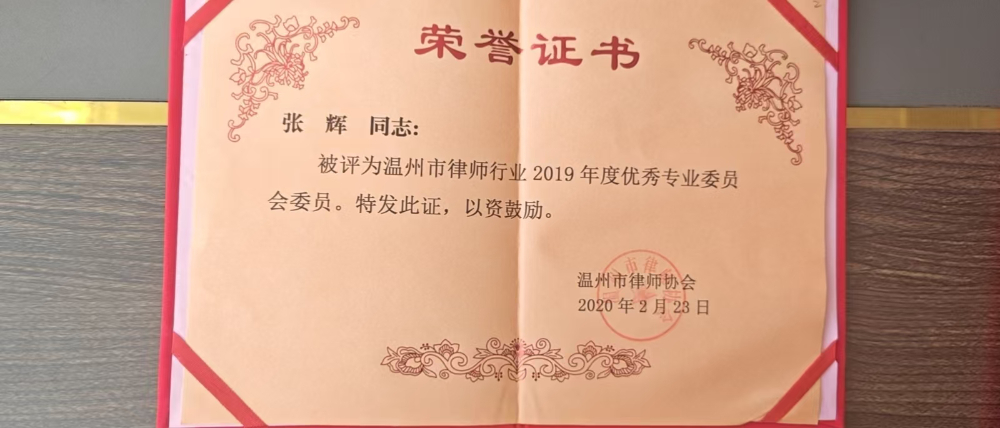 荣誉证书
张 辉 同志:
被评为温州市律师行业 2019 年度优秀专业委员
会委员。特发此证，以资鼓励。
温州市律师协会
2020 年 2 月 23 日